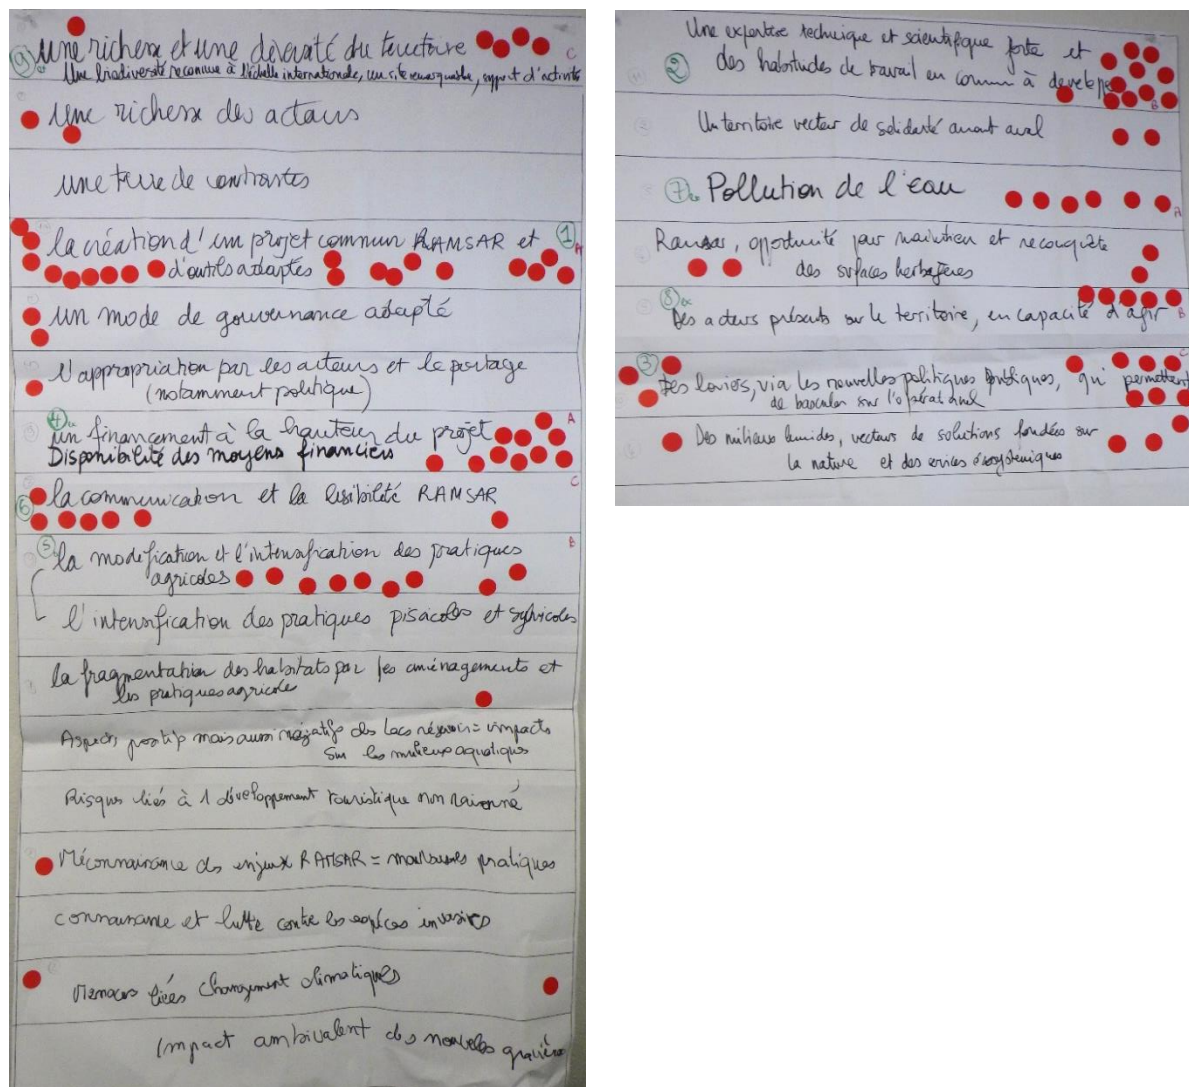 9 une richesse et une diversité du territoire C
Une biodiversité reconnue à l'échelle internationale, un site remarquable, support d'activités
Une richesse des acteurs
une terre de contrastes
la création d'un projet commun RAMSAR et 1 A
d'outils adaptés
un mode de gouvernance adapté
l'appropriation par les acteurs et le portage
(notamment politique)
4 A
un financement à la hauteur du projet
Disponibilité des moyens financiers
6 la communication et la lisibilité RAMSAR C
5 la modification et l'intensification des pratiques B
agricoles
l'intensification des pratiques piscicoles et sylvicoles
la fragmentation des habitats par les aménagements et
les pratiques agricoles
Aspects positifs mais aussi négatifs des lacs réservoirs = impacts
sur les milieux aquatiques
Risques liés à l développement touristique non raisonné
Méconnaissance des enjeux RAMSAR = mauvaises pratiques
connaissance et lutte contre les espèces invasives
Menaces liées changement climatiques
Impact ambivalent des nouvelles gravières
Une expertise technique et scientifique forte et
2 des habitudes de travail en commun à développer B
Un territoire vecteur de solidarité amont aval
7 Pollution de l'eau A
Ramsar, opportunité pour maintien et reconquête
des surfaces herbagères
8
Des acteurs présents sur le territoire, en capacité d'agir B
3 C
Des leviers, via les nouvelles politiques publiques, qui permettent
de basculer sur l'opérationnel
Des milieux humides, vecteurs de solutions fondées sur
la nature et des services écosystémiques